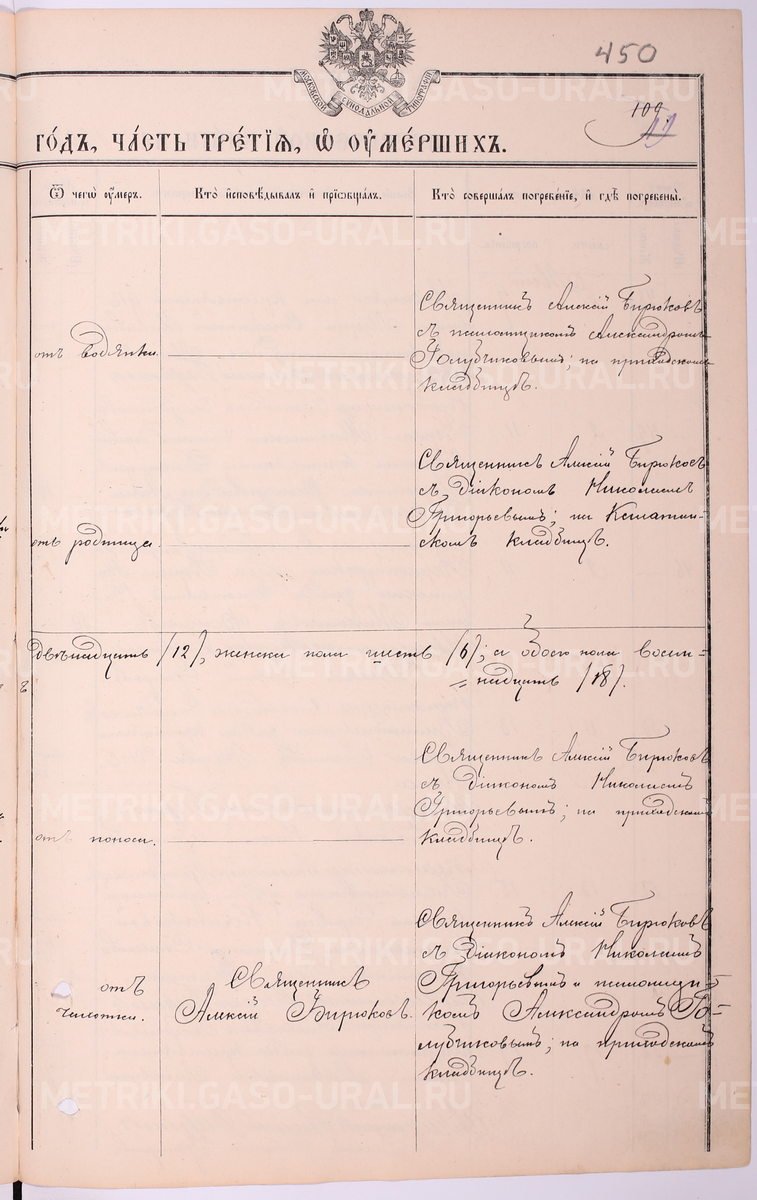 450
МОСКОВСКОЙ СѴНОДАЛЬНОЙ ТИПОГРАФІИ
109.
ГО́ДЪ, ЧА́СТЬ ТРЕ́ТІѦ, Ѡ҆ ОУ҆МЕ́РШИХЪ.
Ѿ чегѡ̀ оу҆́меръ.
Кто̀ и҆сповѣ́дывалъ и҆ прїѡбща́лъ.
Кто̀ соверша́лъ погребе́нїе, и҆ гдѣ̀ погребены̀.
отъ водянки.
Священникъ Алексій Бирюковъ
съ псаломщикомъ Александромъ
Голубчиковымъ; на приходскомъ
кладбищѣ.
отъ родимца.
Священникъ Алексій Бирюковъ
съ Діакономъ Николаемъ
Григорьевымъ; на
скомъ кладбищѣ.
двѣнадцать /12/, женска пола шесть /6/; а обоего пола восем=
=надцать /18/.
отъ поноса.
Священникъ Алексій Бирюковъ
съ Діакономъ Николаемъ
Григорьевымъ; на приходскомъ
кладбищѣ.
отъ
чахотки.
Священникъ
Алексій Бирюковъ.
Священникъ Алексій Бирюковъ
съ Діакономъ Николаемъ
Григорьевымъ и псаломщи=
комъ Александромъ Го=
лубчиковымъ; на приходскомъ
кладбищѣ.
METRIKI.GASO-URAL.RU